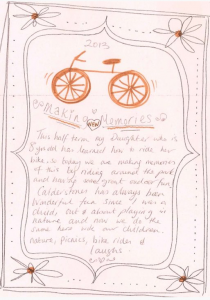 2013
Making Memories
This half term my Daughter who is
8 yr old has learned how to ride her
bike, so today we are making memories
of our by riding around the park
and having some great outdoor fun
Calderstones has always been
wonderful fun since I was a
child, out & about playing in
nature and now we do the
same here with our children.
nature, picnics, bike rides &
laughs